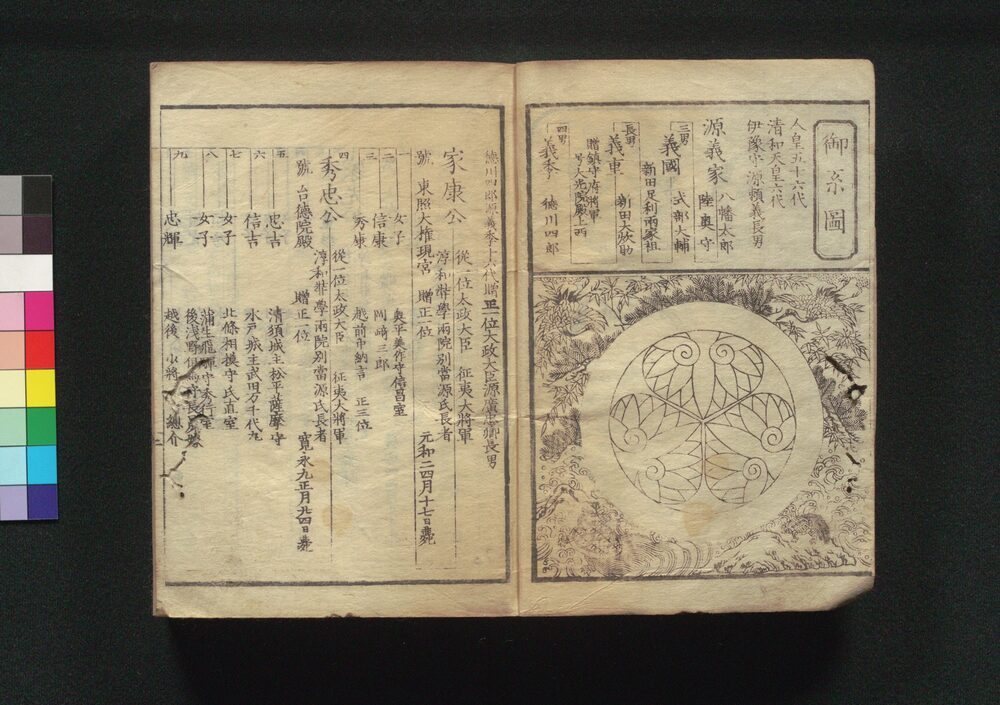 御系圖
人皇五十六代
清和天皇六代
伊豫守源頼義長男
源義家 八幡太郎
陸奥守
三男
義國 式部大輔
新田足利兩家祖
長男
義重 新田大炊助
贈鎮守府將軍
号大光院殿上西
四男
義季 徳川四郎
徳川四郎源義季十六代贈正一位大政大臣源廣忠卿長男
家康公 從一位太政大臣 征夷大將軍
淳和奨學兩院別當源氏長者
號 東照大権現宮 贈正一位 元和二四月十七日薨
一 女子 奥平美作守信昌室
二 信康 岡崎三郎
三 秀康 越前中納言 正三位
四 秀忠公 從一位太政大臣 征夷大將軍
淳和奨學兩院別當源氏長者
號 台徳院殿 贈正一位 寛永九正月廿四日薨
五 忠吉 清須城主松平薩摩守
六 信吉 水戸城主武田万千代丸
七 女子 北條相摸守氏直室
八 女子 蒲生飛騨守秀行室
後浅野但馬守長晟
九 忠輝 越後 少將 上總介